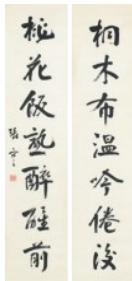 桐木布溫吟倦後
桃花飯熟醉醒前
張謇